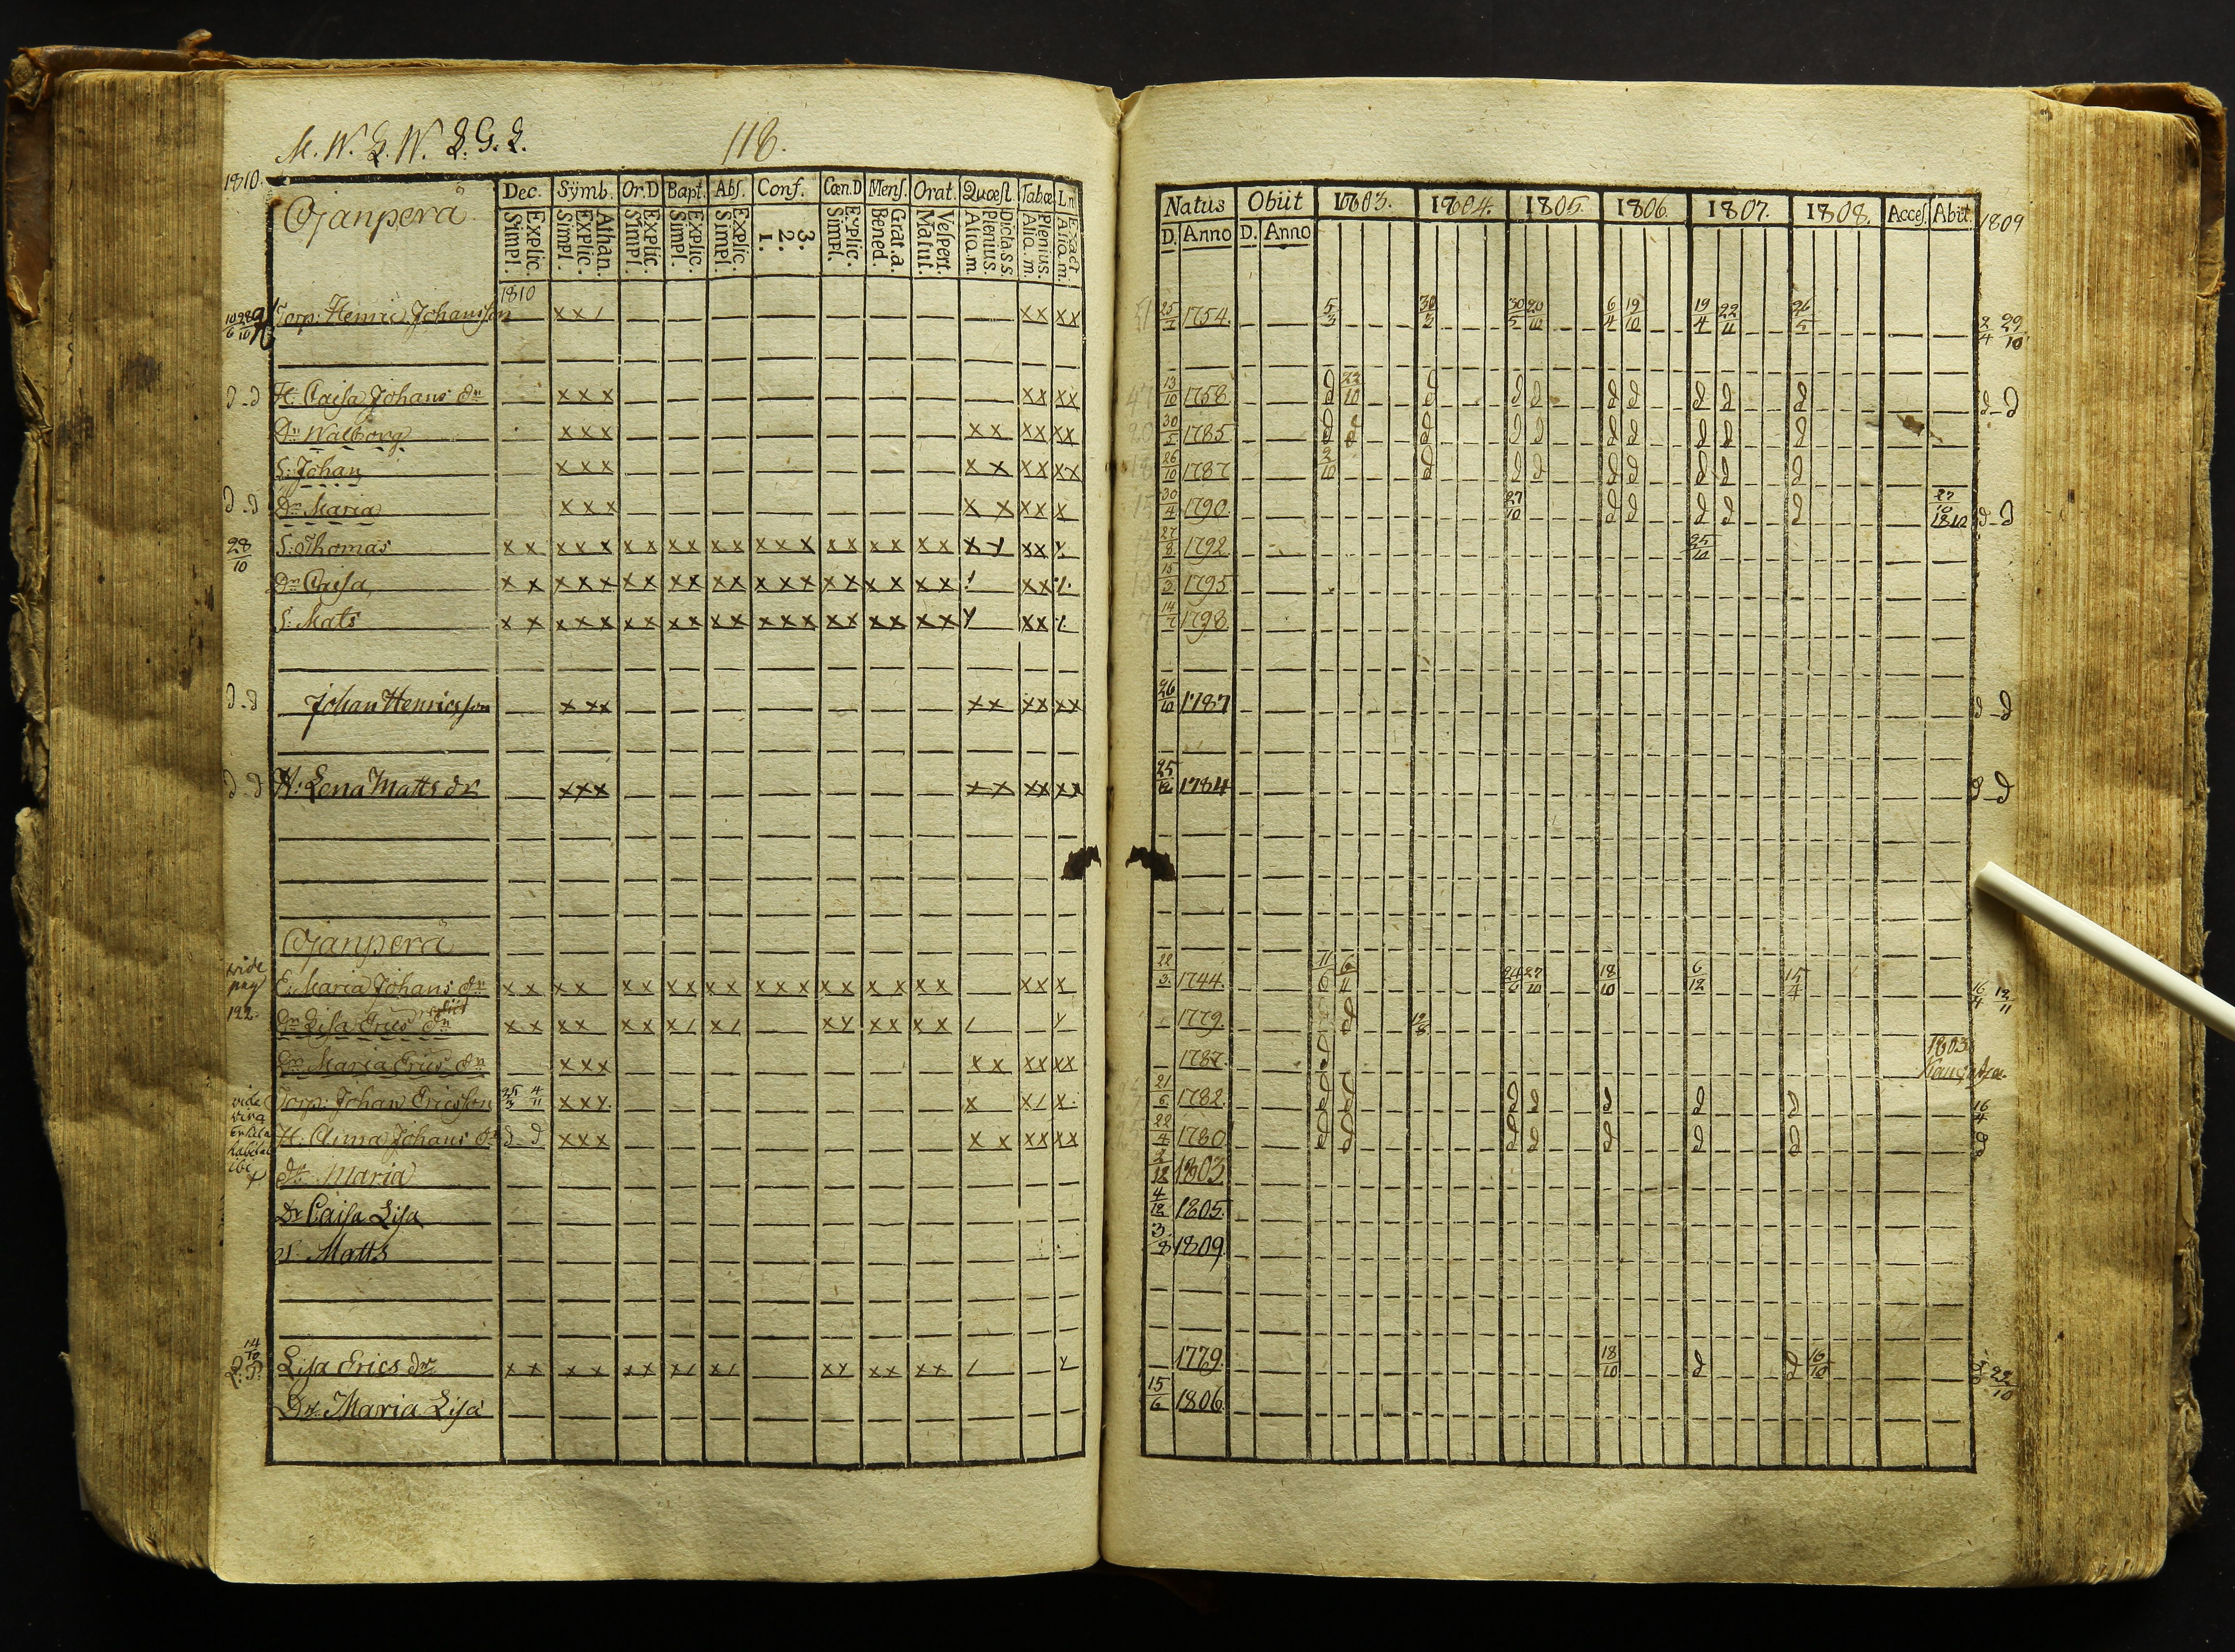 M. W. L. W. L. G. L.
118.
1810.
Ojanperå
Dec. Sÿmb. Or.D Bapt. Abſ. Conf. Cœn.D Menſ. Orat. Quœſt. Tabœ L.n
Simpl. Explic. Simpl. Explic. Athan. Simpl. Explic. Simpl. Explic. Simpl. Explic. 1. 2. 3. Simpl. Explic. Bened. Grat.a. Matut. Veſpert. Alio.m. Plenius. Dicta.s.s. Alia.m. Plenius. Alia.m. Exact
1810
Torp: Henric Johansson x x / x x x x
d - d H. Caisa Johans dr x x x x x x x
Dr Walborg x x x x x x x x x
S: Johan x x x x x x x x x
d - d Dr Maria x x x x x x x x
28/10 S: Thomas x x x x x x x x x x x x x x x x x x x x x x x x x
Dr Caisa x x x x x x x x x x x x x x x x x x x x x / x x /.
S: Mats x x x x x x x x x x x x x x x x x x x x x x x x
d - d Johan Henricsson x x x x x x x x x
d - d H: Lena Matts dr x x x x x x x x x
Ojanperå
vide pag 122. E. Maria Johans dr x x x x x x x x x x x x x x x x x x x x x x x
Dr Lisa Erics dr x x x x x x x / x / x x x x x x /
Dr Maria Erics dr x x x x x x x x x
vide Torp: Johan Ericsson 25/3 4/11 x x x x x / x
H. Anna Johans dr d - d x x x x x x x x x
habitat ibi
Dr Maria
Dr Caisa Lisa
S. Matts
14/10 Lisa Erics dr x x x x x x x / x / x x x x x x /
Dr Maria Lisa
Natus Obiit 1803. 1804. 1805. 1806. 1807. 1808. Acceſ. Abiit. 1809
D. Anno D. Anno
25/7 1754. 5/3 30/3 30/5 20/10 6/4 19/10 19/4 22/11 26/5 2/4 29/10
13/10 1758 d 23/10 d d d d d d d d d - d
30/5 1785 d d d d d d d d d d
26/10 1787 2/10 d d d d d d d d
30/4 1790 27/10 d d d d d 27/10 1810 d - d
27/8 1792 25/10
15/3 1795
14/7 1798
26/10 1787 d - d
25/12 1784 d - d
22/3 1744 11/6 6/11 24/6 27/10 18/10 6/12 15/4 16/4 12/11
1779. d
1787. 1803
21/6 1782. d d d d d d d 16/4
22/4 1780 d d d d d d d d
2/12 1803
4/12 1805
3/8 1809
1779. 18/10 d d 16/10 d 22/10
15/6 1806